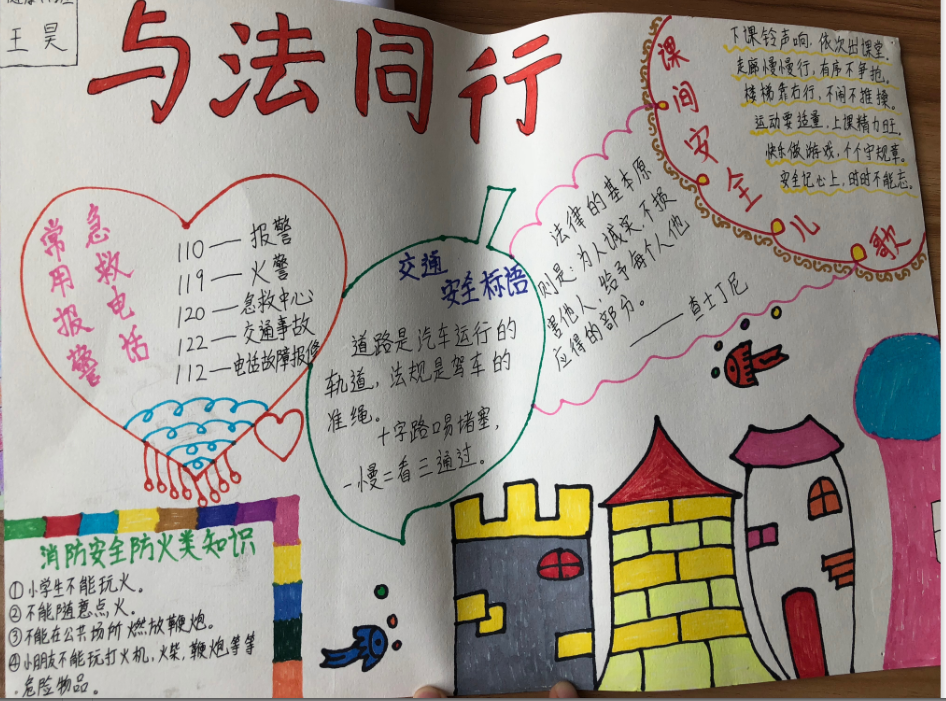 王昊
与法同行
课间安全儿歌
下课铃声响,依次出课堂.
走廊慢慢行,有序不争抢。
楼梯靠右行,不闹不推搡。
运动要适量,上课精力旺。
快乐做游戏,个个守规章。
安全记心上,时时不能忘。
常用报警
急救电话
110—报警
119—火警
120—急救中心
122—交通事故
112—电话故障报修
交通
安全标语
道路是汽车运行的
轨道,法规是驾车的
准绳。
十字路口易堵塞,
一慢二看三通过。
法律的基本原
则是:为人诚实,不损
害他人,给予每个人他
应得的部分。
——查士丁尼
消防安全防火类知识
①小学生不能玩火。
②不能随意点火。
③不能在公共场所燃放鞭炮。
④小朋友不能玩打火机,火柴,鞭炮等等
危险物品。